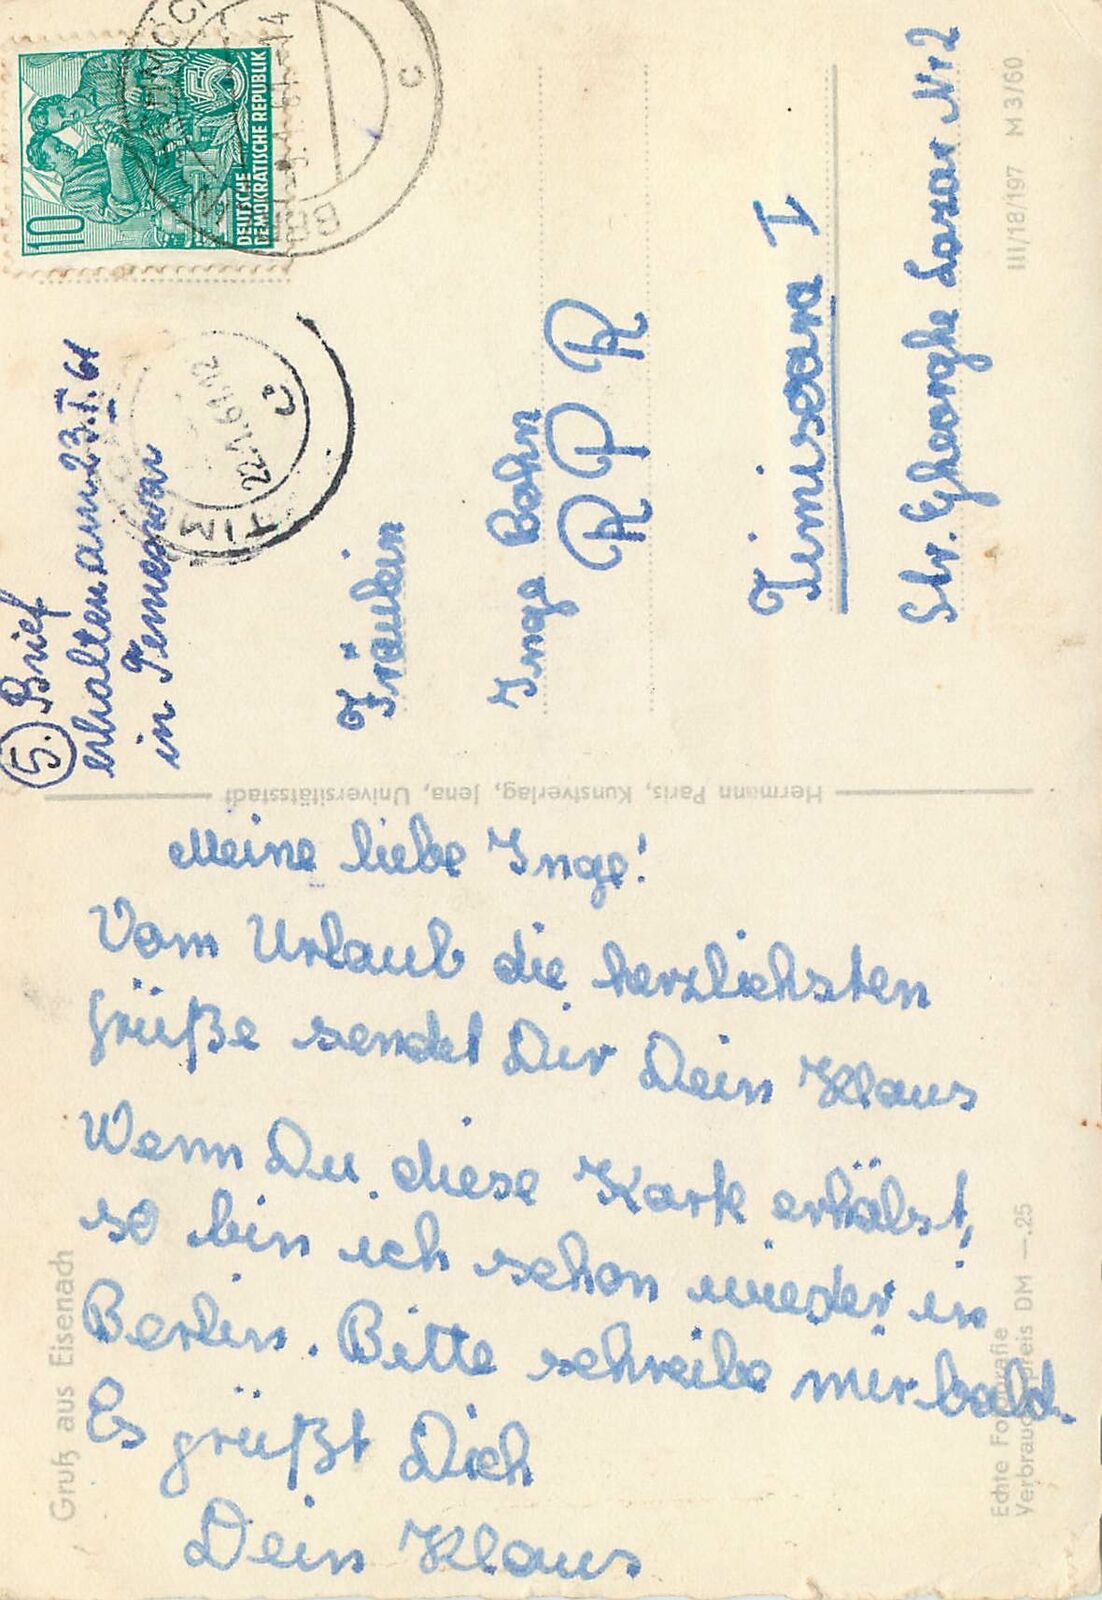 Meine liebe Inge!
Vom Urlaub die herzlichsten
Grüße sendet Dir Dein Klaus
Wenn Du diese Karte erhälst,
so bin ich schon wieder in
Berlin. Bitte schreibe mir bald.
Es grüßt Dich
Dein Klaus
Gruß aus Eisenach
Echte Fotografie
Verbraucherpreis DM —.25
Hermann Paris, Kunstverlag, Jena, Universitätsstadt
5. Brief
erhalten am 23.I.61
in Temeswar
Fräulein
Inge Bahn
R P R
Timisoara I
Str. Gheorghe Lazar Nr 2
III/18/197 M 3/60
10
5
DEUTSCHE
DEMOKRATISCHE REPUBLIK
22.1.61.12
c